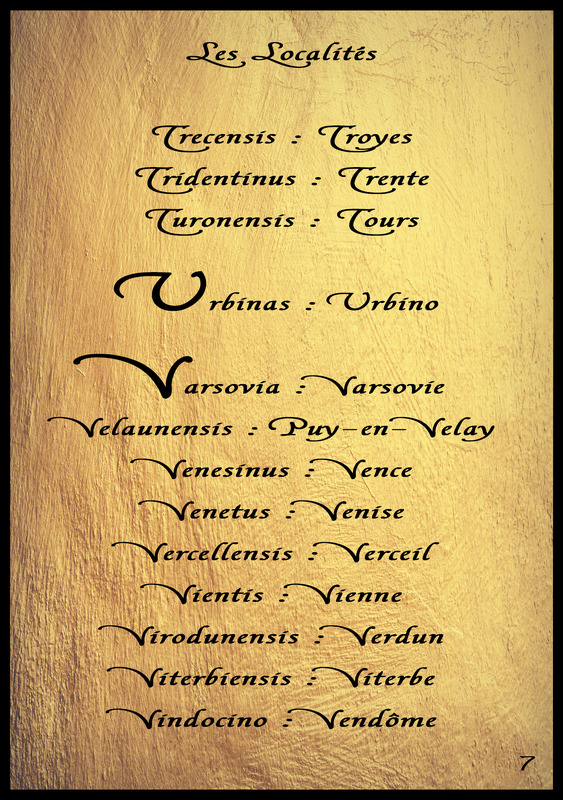 Les Localités
Trecensis : Troyes
Tridentinus : Trente
Turonensis : Tours
Urbinas : Urbino
Varsovia : Varsovie
Velaunensis : Puy-en-Velay
Venesinus : Vence
Venetus : Venise
Vercellensis : Verceil
Vientis : Vienne
Virodunensis : Verdun
Viterbiensis : Viterbe
Vindocino : Vendôme
7